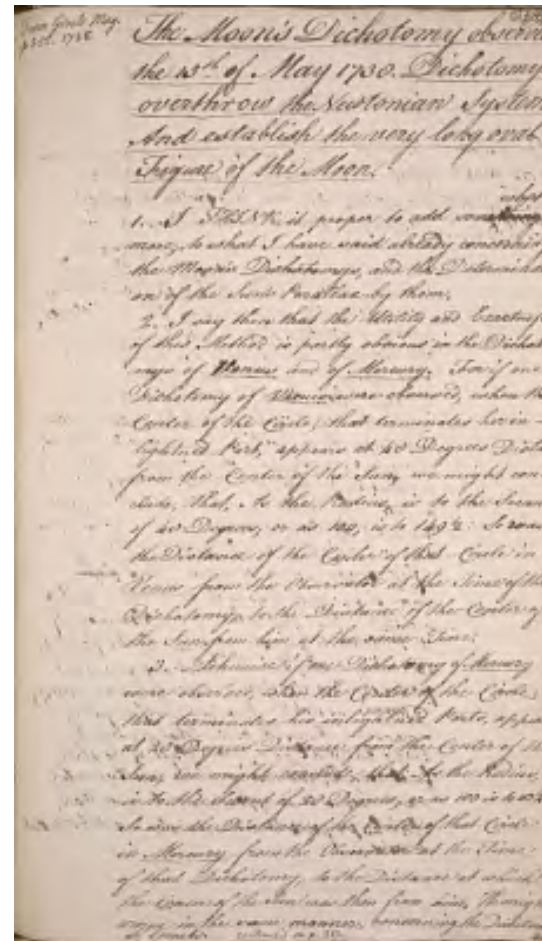 From Gents Mag.
The Moon's Dichotomy observ
the 13th of May 1730. Dichotomy
overthrow the Newtonian System
And establish the very long oval
Figure of the Moon.
what
1. I THINK it proper to add something
more, to what I have said already concernin
the Moon's Dichotomys, and the Determinati
on of the Sun's Parallax by them.
2. I say then that the Utility and Exactness
of this Method is partly obvious in the Dichot
omys of Venus and of Mercury. For if one
Dichotomy of Venus were observed, when the
Center of the Circle, that terminates her in-
lightned Part, appears at 40 Degrees Dista
from the Center of the Sun, we might con
clude, that, As the Radius, is to the Secant
of 40 Degrees, or as 100, is to
the Distance of the Center of that Circle in
Venus from the Observator at the Time of the
Dichotomy, to the Distance of the Center of
the Sun from him at the same Time.
3. Likewise if one Dichotomy of Mercury
were observed, when the Center of the Circle
that terminates his inlightned Parts, appea
at 20 Degrees Distance from the Center of the
Sun, we might conclude, that, As the Radius,
is to the Secant of 20 Degrees, or as 100 is to
So was the Distance of the Center of that Circle
in Mercury from the Observator at the Time
of that Dichotomy, to the Distance at which
the Center of the Sun was then from him,
in the same manner, concerning the Dichotom